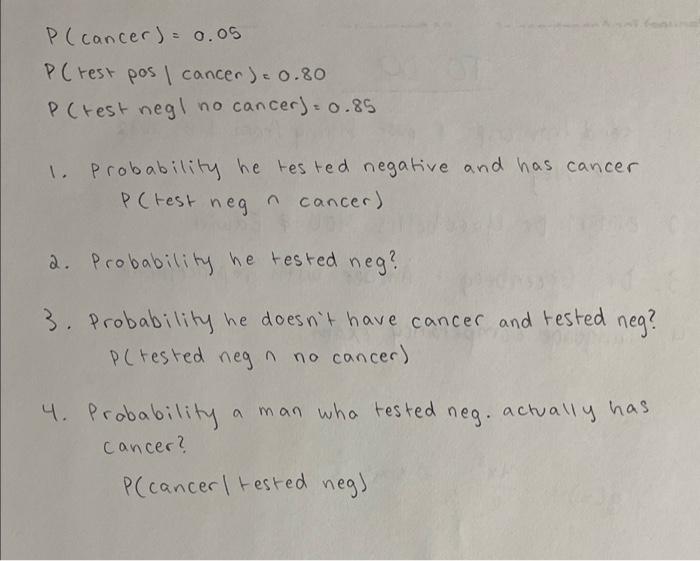 P(cancer) = 0.05
P(test pos | cancer) = 0.80
P(test neg | no cancer) = 0.85
1. Probability he tested negative and has cancer
P(test neg ∩ cancer)
2. Probability he tested neg?
3. Probability he doesn't have cancer and tested neg?
P(tested neg ∩ no cancer)
4. Probability a man who tested neg. actually has
cancer?
P(cancer | tested neg)